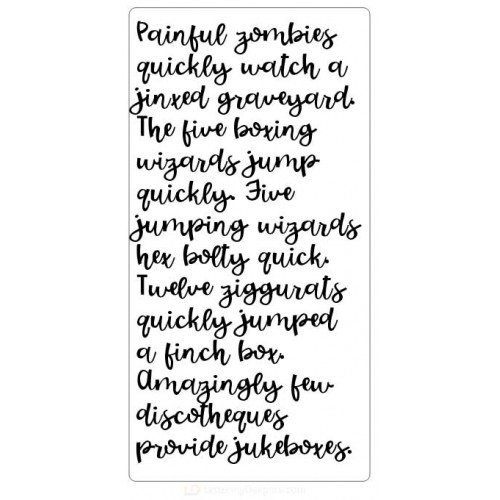 Painful zombies
quickly watch a
jinxed graveyard.
The five boxing
wizards jump
quickly. Five
jumping wizards
hex bolty quick.
Twelve ziggurats
quickly jumped
a finch box.
Amazingly few
discotheques
provide jukeboxes.